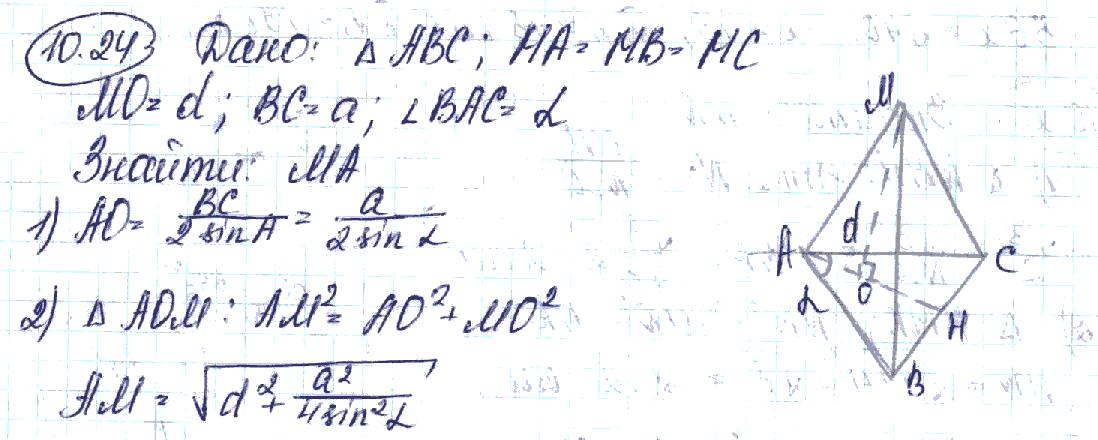 10.24 Дано: △ ABC; MA = MB = MC
MO = d; BC = a; ∠BAC = α
Знайти: MA
1) AO = BC / 2 sin A = a / 2 sin α
2) △ AOM: AM² = AO² + MO²
AM = √(d² + a² / 4 sin² α)
M
d
A
C
α
O
H
B